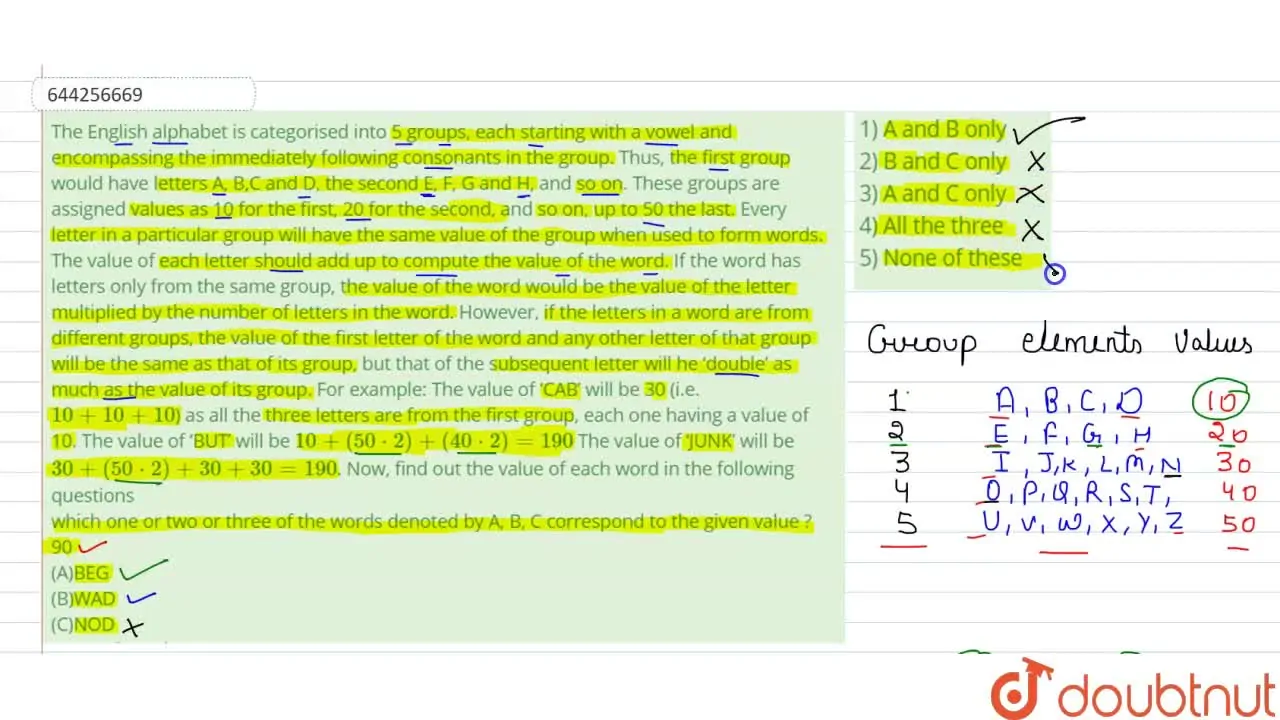 644256669
The English alphabet is categorised into 5 groups, each starting with a vowel and
encompassing the immediately following consonants in the group. Thus, the first group
would have letters A, B,C and D, the second E, F, G and H, and so on. These groups are
assigned values as 10 for the first, 20 for the second, and so on, up to 50 the last. Every
letter in a particular group will have the same value of the group when used to form words.
The value of each letter should add up to compute the value of the word. If the word has
letters only from the same group, the value of the word would be the value of the letter
multiplied by the number of letters in the word. However, if the letters in a word are from
different groups, the value of the first letter of the word and any other letter of that group
will be the same as that of its group, but that of the subsequent letter will he 'double' as
much as the value of its group. For example: The value of 'CAB' will be 30 (i.e.
10 + 10 + 10) as all the three letters are from the first group, each one having a value of
10. The value of 'BUT' will be 10 + (50 · 2) + (40 · 2) = 190 The value of 'JUNK' will be
30 + (50 · 2) + 30 + 30 = 190. Now, find out the value of each word in the following
questions
which one or two or three of the words denoted by A, B, C correspond to the given value ?
90
(A)BEG
(B)WAD
(C)NOD
1) A and B only
2) B and C only
3) A and C only
4) All the three
5) None of these
Group elements Values
1 A, B, C, D 10
2 E, F, G, H 20
3 I, J, K, L, M, N 30
4 O, P, Q, R, S, T, 40
5 U, V, W, X, Y, Z 50
doubtnut